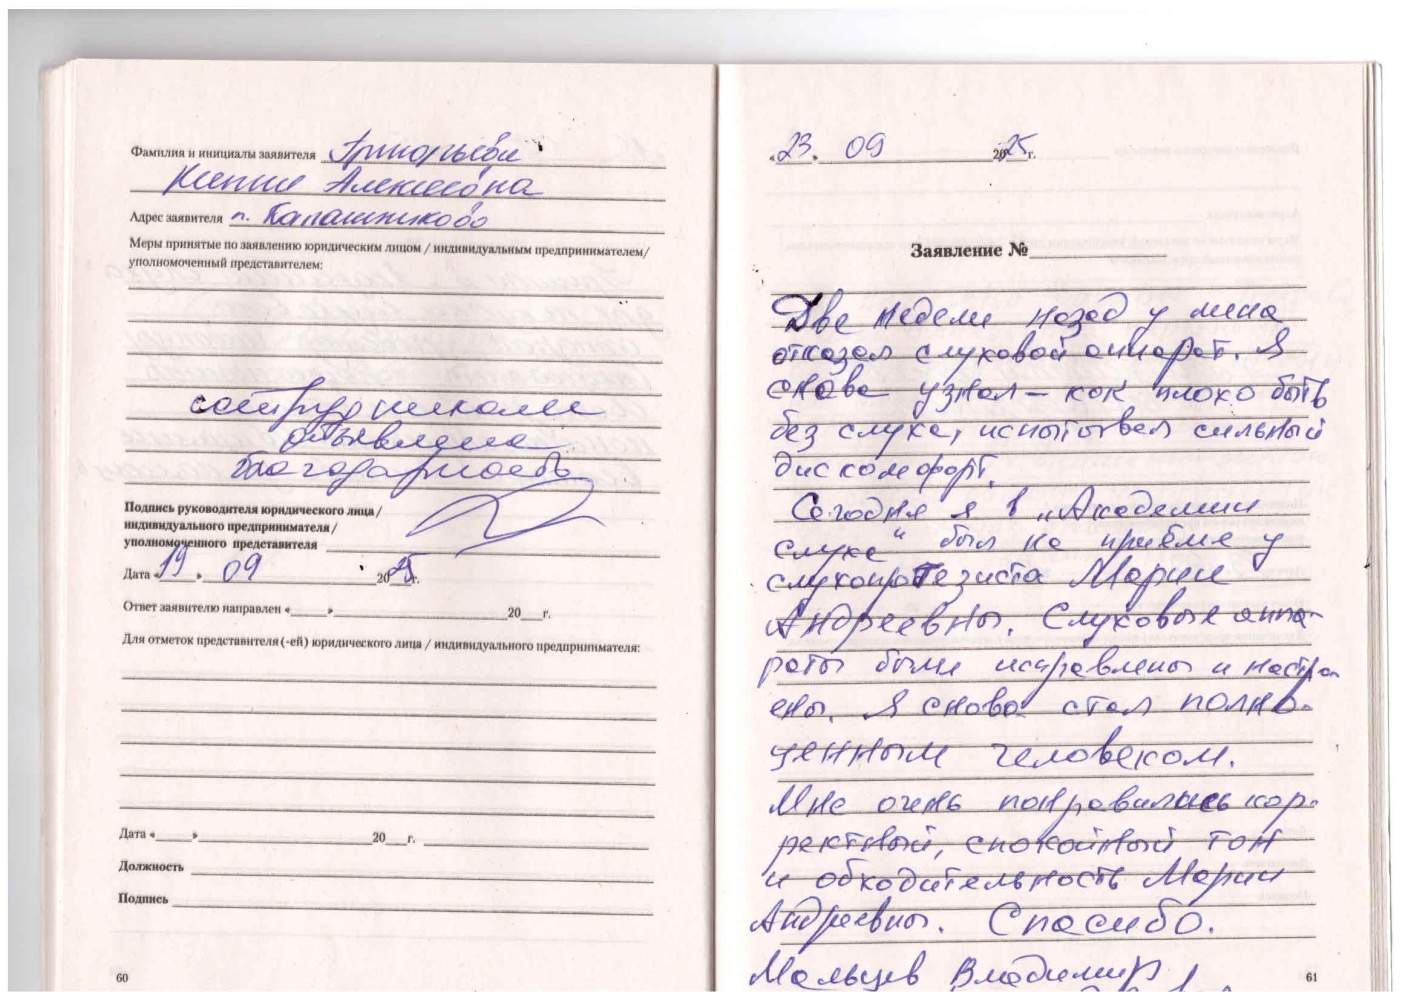 Фамилия и инициалы заявителя Григорьева
Ксения Алексеевна
Адрес заявителя п. Калашниково
Меры принятые по заявлению юридическим лицом / индивидуальным предпринимателем/
уполномоченный представителем:
сотрудникам
объявлена
благодарность
Подпись руководителя юридического лица /
индивидуального предпринимателя /
уполномоченного представителя
Дата « 19 » 09 2025г.
Ответ заявителю направлен «____» ____ 20__г.
Для отметок представителя (-ей) юридического лица / индивидуального предпринимателя:
Дата «____» ____ 20__г.
Должность
Подпись
60
« 23 » 09 2025г.
Заявление №
Две недели назад у меня
отказал слуховой аппарат. Я
снова узнал – как плохо быть
без слуха, испытывал сильный
дискомфорт.
Сегодня я в „Академии
слуха“ был на приёме у
слухопротезиста Марии
Андреевны. Слуховые аппа-
раты были исправлены и настро-
ены. Я снова стал полно-
ценным человеком.
Мне очень понравились кор-
ректный, спокойный тон
и обходительность Марии
Андреевны. Спасибо.
Мальцев Владимир
61